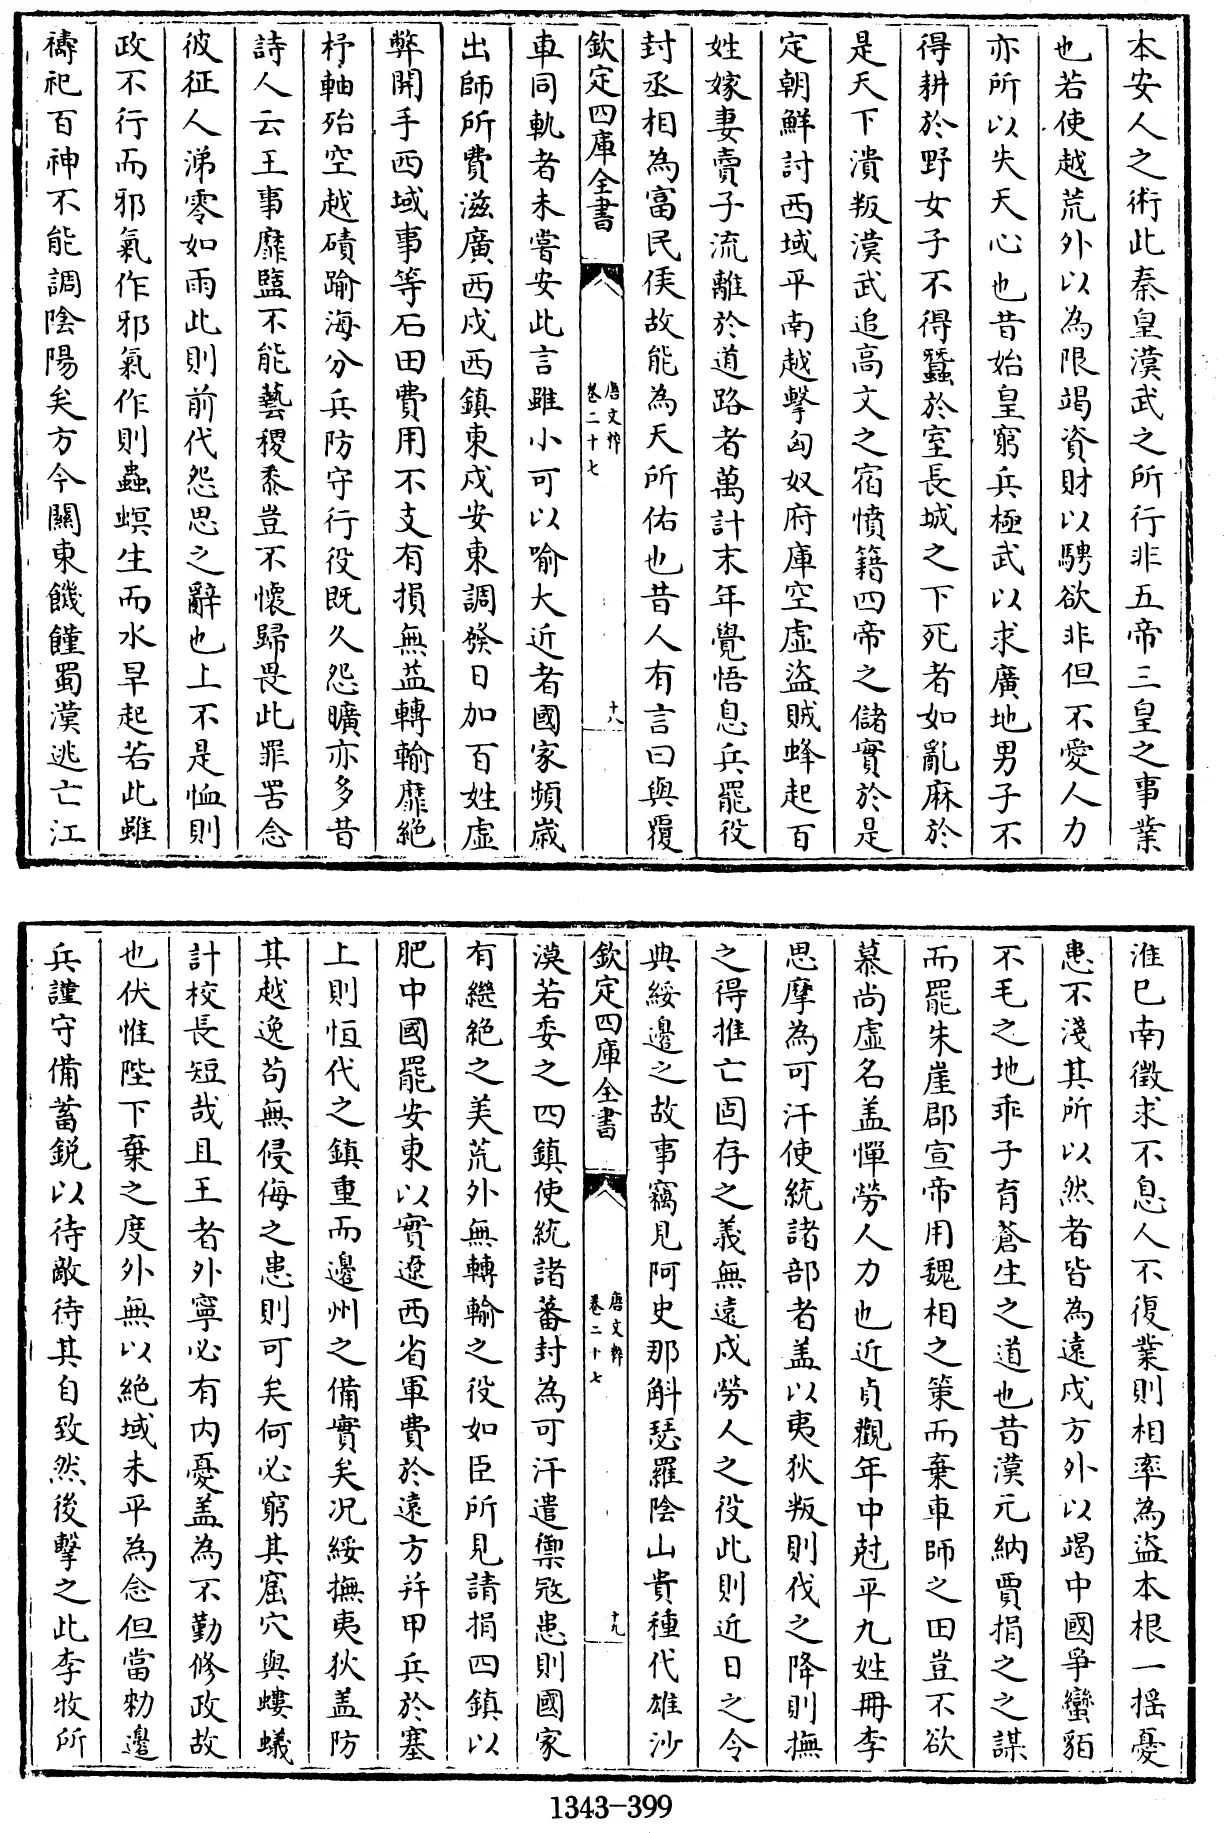 本安人之術此秦皇漢武之所行非五帝三皇之事業
也若使越荒外以為限竭資財以騁欲非但不愛人力
亦所以失天心也昔始皇窮兵極武以求廣地男子不
得耕於野女子不得蠶於室長城之下死者如亂麻於
是天下潰叛漢武追高文之宿憤籍四帝之儲實於是
定朝鮮討西域平南越擊匈奴府庫空虛盜賊蜂起百
姓嫁妻賣子流離於道路者萬計末年覺悟息兵罷役
封丞相為富民侯故能為天所佑也昔人有言曰與覆
欽定四庫全書
唐文粹
卷二十七
十八
車同軌者未嘗安此言雖小可以喻大近者國家頻歲
出師所費滋廣西戍西鎮東戍安東調發日加百姓虛
弊開手西域事等石田費用不支有損無益轉輸靡絕
杼軸殆空越磧踰海分兵防守行役既久怨曠亦多昔
詩人云王事靡盬不能藝稷黍豈不懷歸畏此罪罟念
彼征人涕零如雨此則前代怨思之辭也上不是恤則
政不行而邪氣作邪氣作則蟲螟生而水旱起若此雖
禱祀百神不能調陰陽矣方今關東饑饉蜀漢逃亡江
淮已南徵求不息人不復業則相率為盜本根一搖憂
患不淺其所以然者皆為遠戍方外以竭中國爭蠻貊
不毛之地乖子育蒼生之道也昔漢元納賈捐之之謀
而罷朱崖郡宣帝用魏相之策而棄車師之田豈不欲
慕尚虛名盖憚勞人力也近貞觀年中尅平九姓冊李
思摩為可汗使統諸部者盖以夷狄叛則伐之降則撫
之得推亡固存之義無遠戍勞人之役此則近日之令
典綏邊之故事竊見阿史那斛瑟羅陰山貴種代雄沙
欽定四庫全書
唐文粹
卷二十七
十九
漠若委之四鎮使統諸蕃封為可汗遣禦冦患則國家
有繼絕之美荒外無轉輸之役如臣所見請捐四鎮以
肥中國罷安東以實遼西省軍費於遠方并甲兵於塞
上則恒代之鎮重而邊州之備實矣况綏撫夷狄盖防
其越逸苟無侵侮之患則可矣何必窮其窟穴與螻蟻
計校長短哉且王者外寧必有内憂盖為不勤修政故
也伏惟陛下棄之度外無以絕域未平為念但當勑邊
兵謹守備蓄銳以待敵待其自致然後擊之此李牧所
1343-399